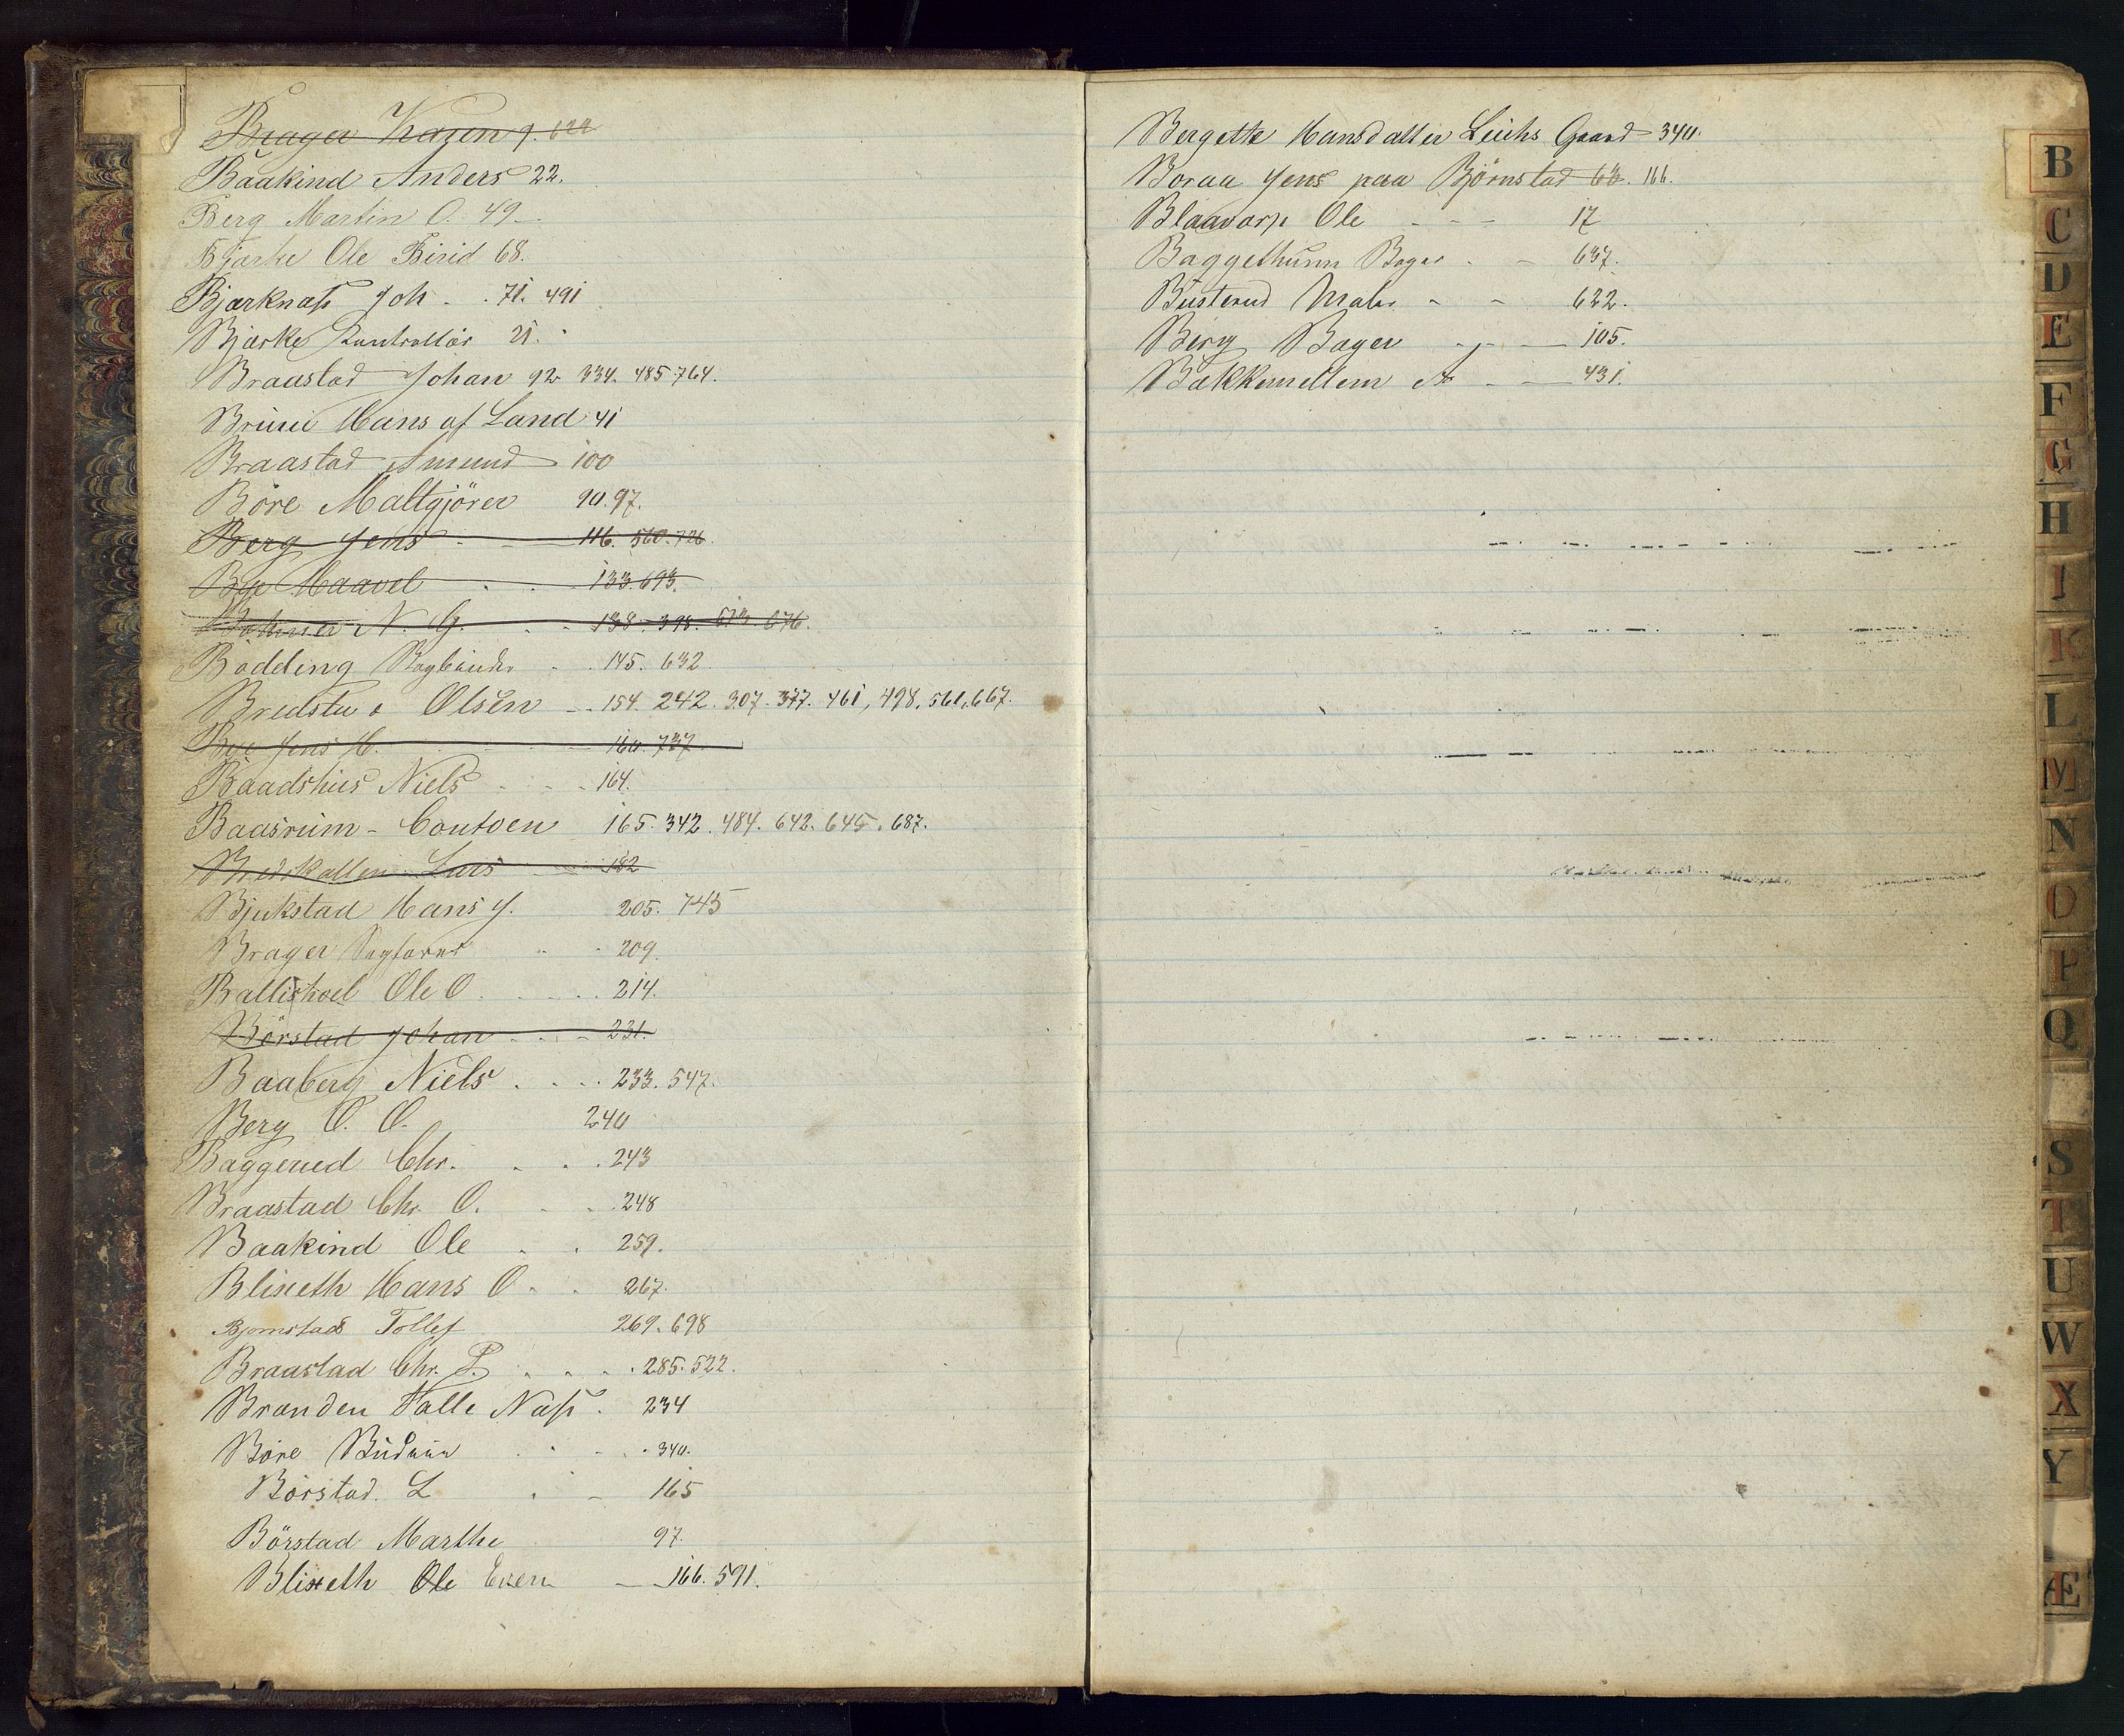 Brager Karen 9. 622
Baakind Anders 22.
Berg Martin O. 49
Bjærke Ole Birid 68.
Bjærknæs Joh 71. 491
Bjærke Kontrollör 21.
Braastad Johan 92 334. 485. 764.
Hans af Land 41
Braastad Amund 100
Böre Maltgjörer 90. 97.
Berg Jens 116. 560. 726
Bye Haavel 133. 693.
N. G. 138. 398. 513. 676.
Bodding Bogbinder 145. 632
Olsen 154. 242. 307. 377. 461, 498. 561. 667.
Bye Jens H. 160. 737
Baadshus Niels 164.
Baasrum - Contoen 165. 342. 484. 642. 645. 687.
Lars 182
Bjukstad Hans J. 205. 743
Brager Sagförer 209.
Ballishoel Ole O. 214.
Börstad Johan 231.
Baaberg Niels 233. 547.
Berg O. O. 240
Baggerud Chr. 243
Braastad Chr. O. 248
Baakind Ole 259.
Blixeth Hans O 267.
Bjornstad Tollef 269. 698
Braastad Chr. P. 285. 522.
Branden Halle Næs. 234
Böre 340.
Börstad. L 165
Börstad Marthe 97.
Blixeth Ole Even 166. 591.
Bergette Hansdatter Gaard 340.
Boraa Jens paa Björnstad 63. 166.
Blaavarp Ole 17
Baggethunn Bager 637.
Busterud Maler 622.
Berg Bager 105.
Bækkemellem A 431.
B
C
D
E
F
G
H
I
K
L
M
N
O
P
Q
S
T
U
W
X
Y
Æ